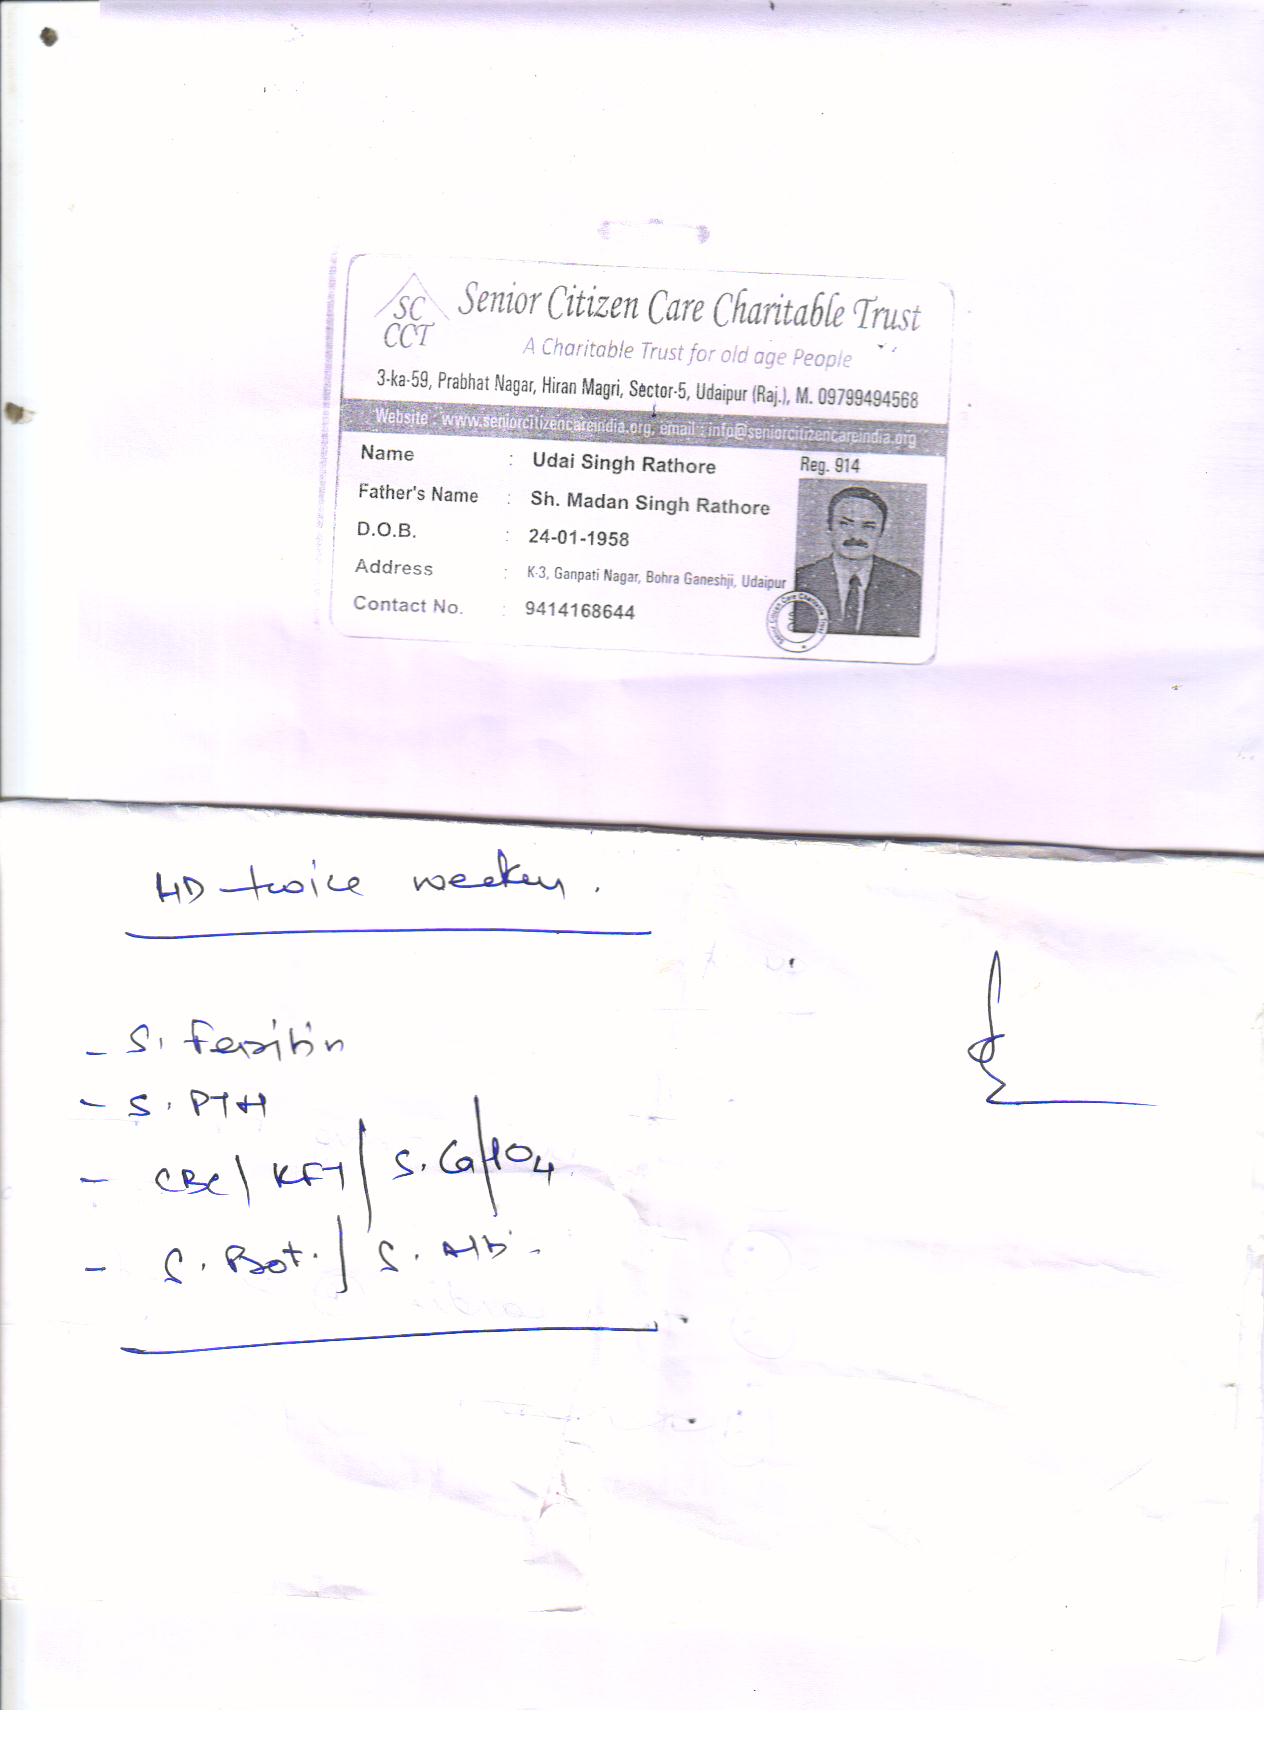 SC
CCT
Senior Citizen Care Charitable Trust
A Charitable Trust for old age People
3-ka-59, Prabhat Nagar, Hiran Magri, Sector-5, Udaipur (Raj.), M. 09799494568
Website : www.seniorcitizencareindia.org, email : info@seniorcitizencareindia.org
Reg. 914
Name : Udai Singh Rathore
Father's Name : Sh. Madan Singh Rathore
D.O.B. : 24-01-1958
Address : K-3, Ganpati Nagar, Bohra Ganeshji, Udaipur
Contact No. : 9414168644
Senior Citizen Care Charitable Trust
HD twice weekly.
- S. Ferritin
- S. PTH
- CBC | KFT | S. Ca/PO4
- S. Pot. | S. Alb.